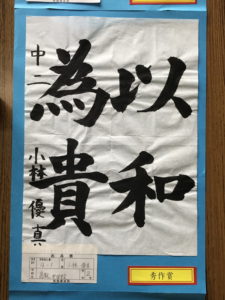 以和
為貴
中二 小林優真
秀作賞